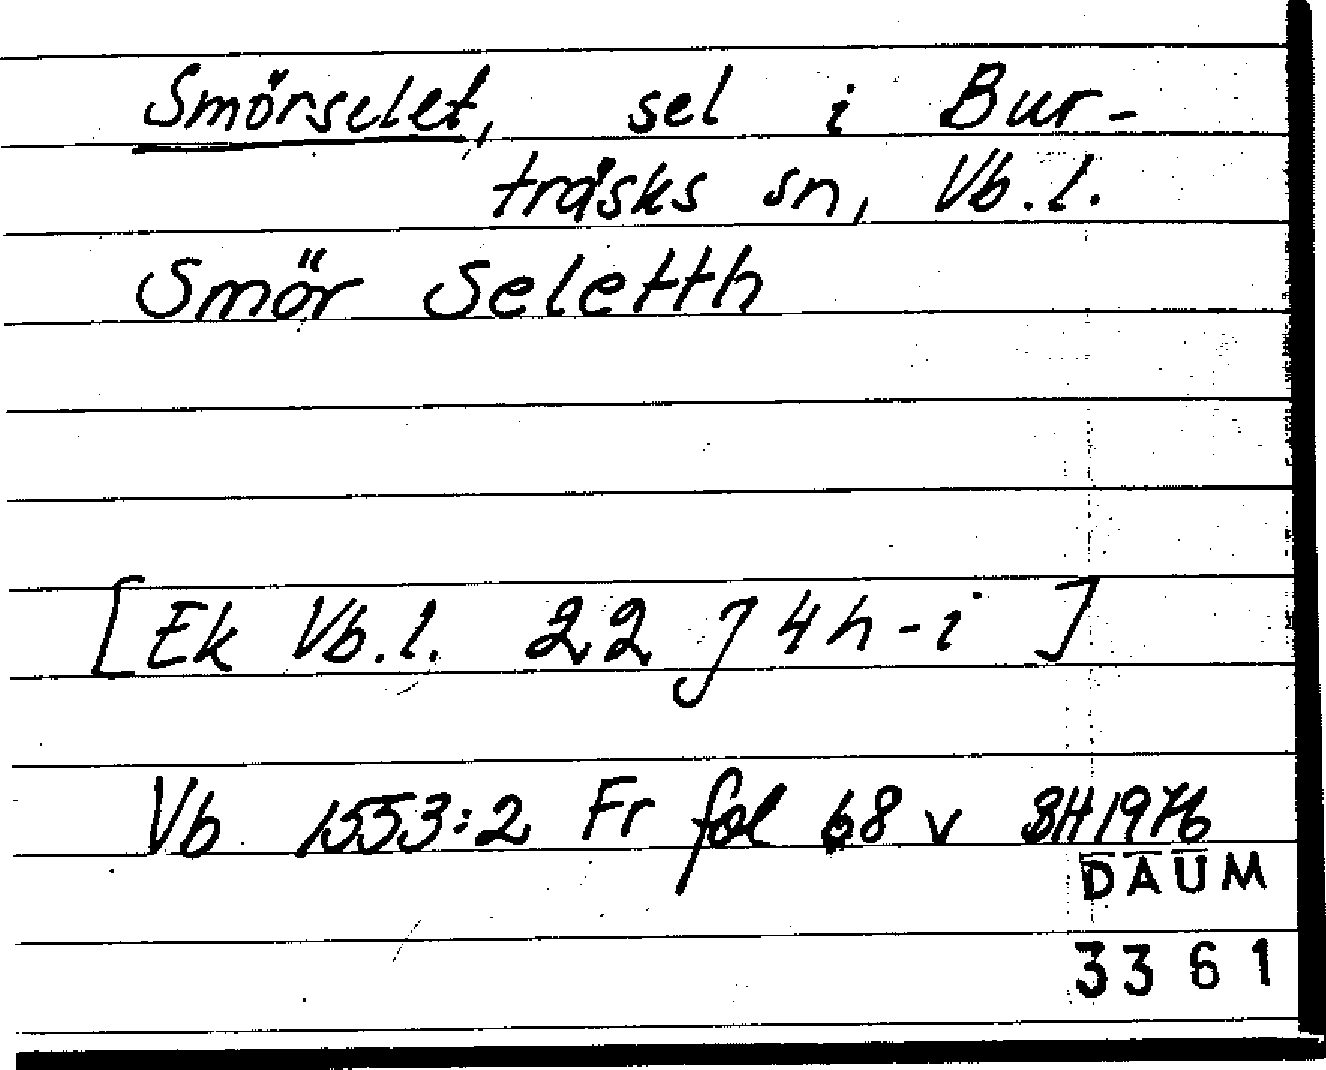 Smörselet, sel i Bur-
träsks sn, Vb.l.
Smör Seletth
[Ek Vb.l. 22 J 4 h-i ]
Vb 1553:2 Fr fol 68 v BH 1976
DAUM
3361